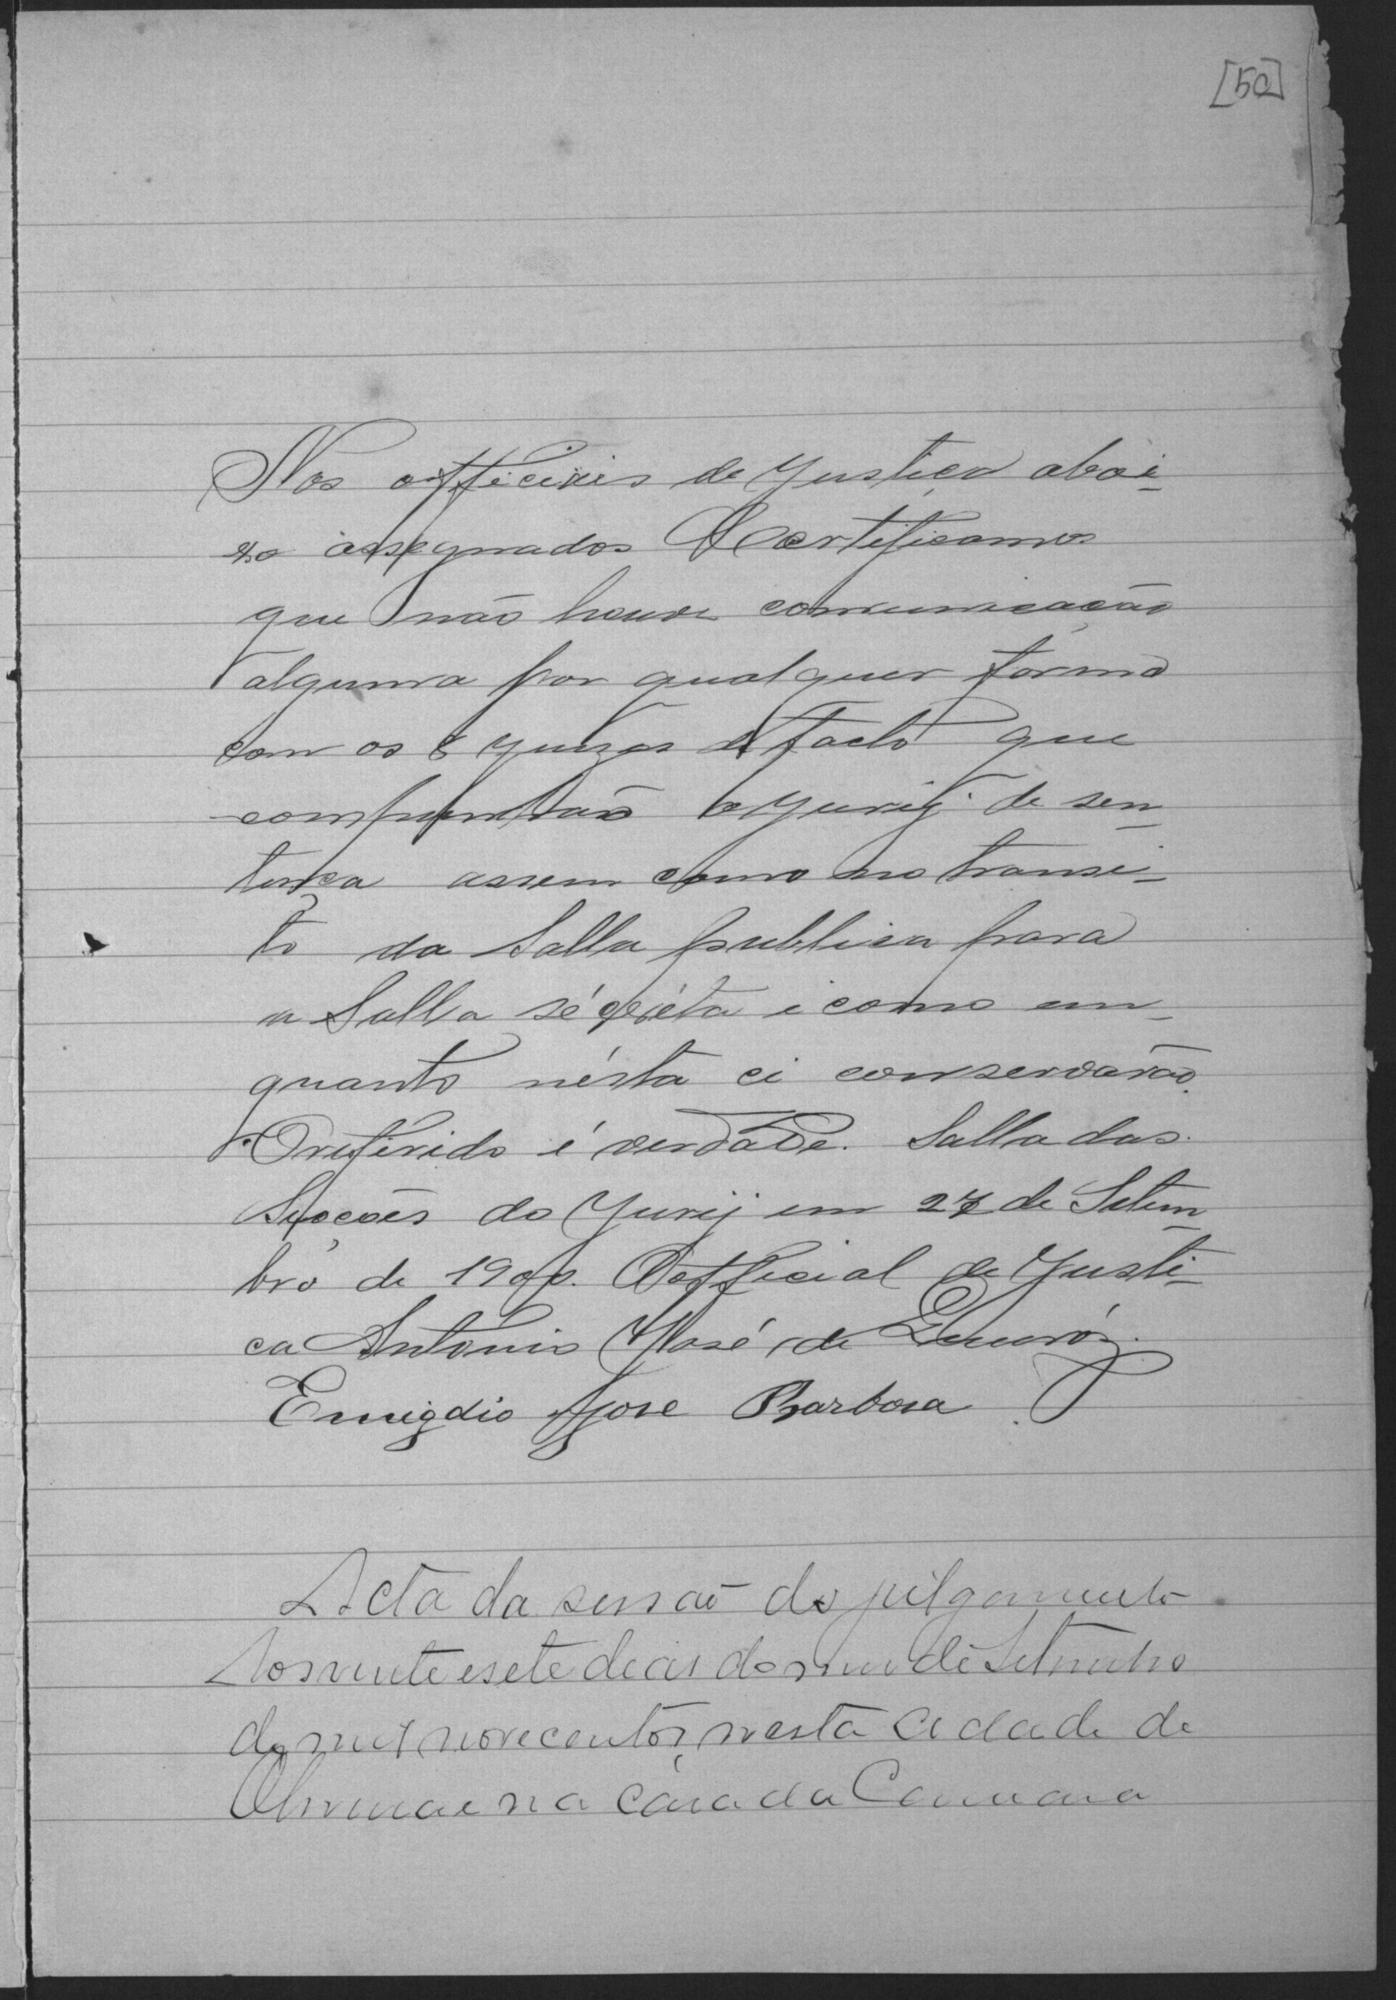 [50]
Nos officiais de Justiça abai-
xo assignados Certificamos
que não houve comunicação
alguma por qualquer forma
com os 8 Juizes de facto que
compuntão o Jurij de sen-
tença assem como no transi-
to da Salla publica para
a Salla sécréta i como em-
quanto nésta ci conservarão.
O riferido é verdade. Salla das
Secções do Jurij em 27 de Setem-
bro de 1900. O official de Justi-
ça Antonio José de
Emigdio Jose Barbosa
Acta da sessão do julgamento
Aos vinte e sete dias do mez de Setembro
de mil novecentos, nesta Cidade de
na Casa da Camara